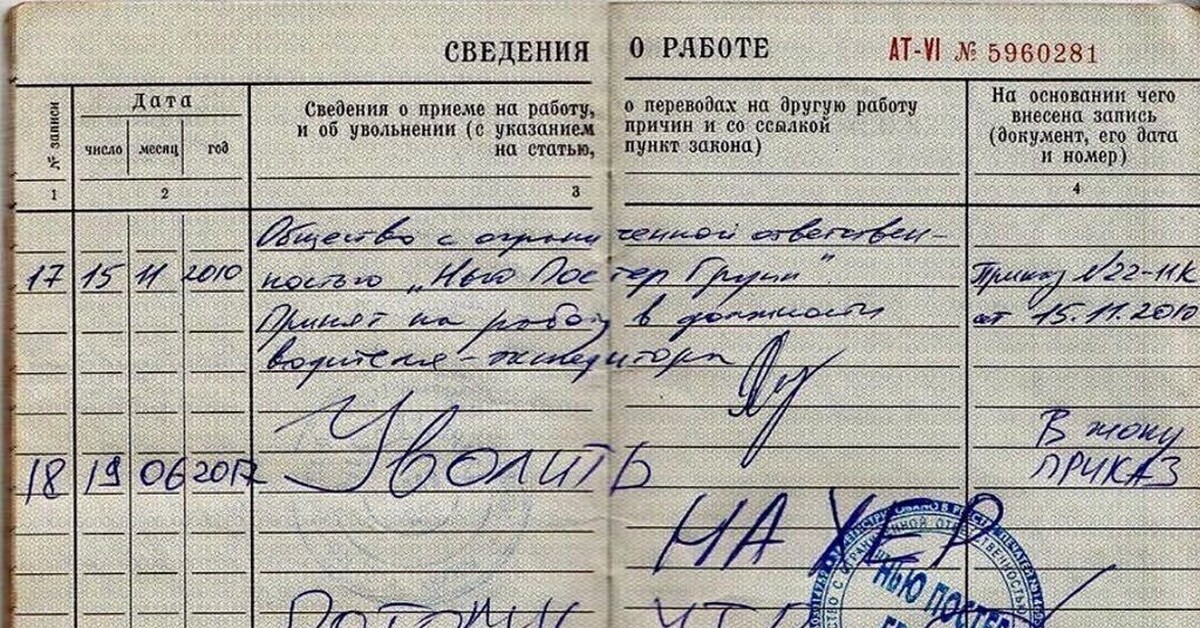 СВЕДЕНИЯ О РАБОТЕ АТ-VI № 5960281
№ записи
Дата
число месяц год
Сведения о приеме на работу, о переводах на другую работу
и об увольнении (с указанием причин и со ссылкой
на статью, пункт закона)
На основании чего
внесена запись
(документ, его дата
и номер)
1 2 3 4
Общество с ограниченной ответствен-
17 15 11 2010 ностью „Нью Постер Групп". Приказ №22-11К
Принят на работу в должности от 15.11.2010
водителя-экспедитора
В жопу
18 19 06 2012 Уволить ПРИКАЗ
НА ХЕР
НЬЮ ПОСТЕР